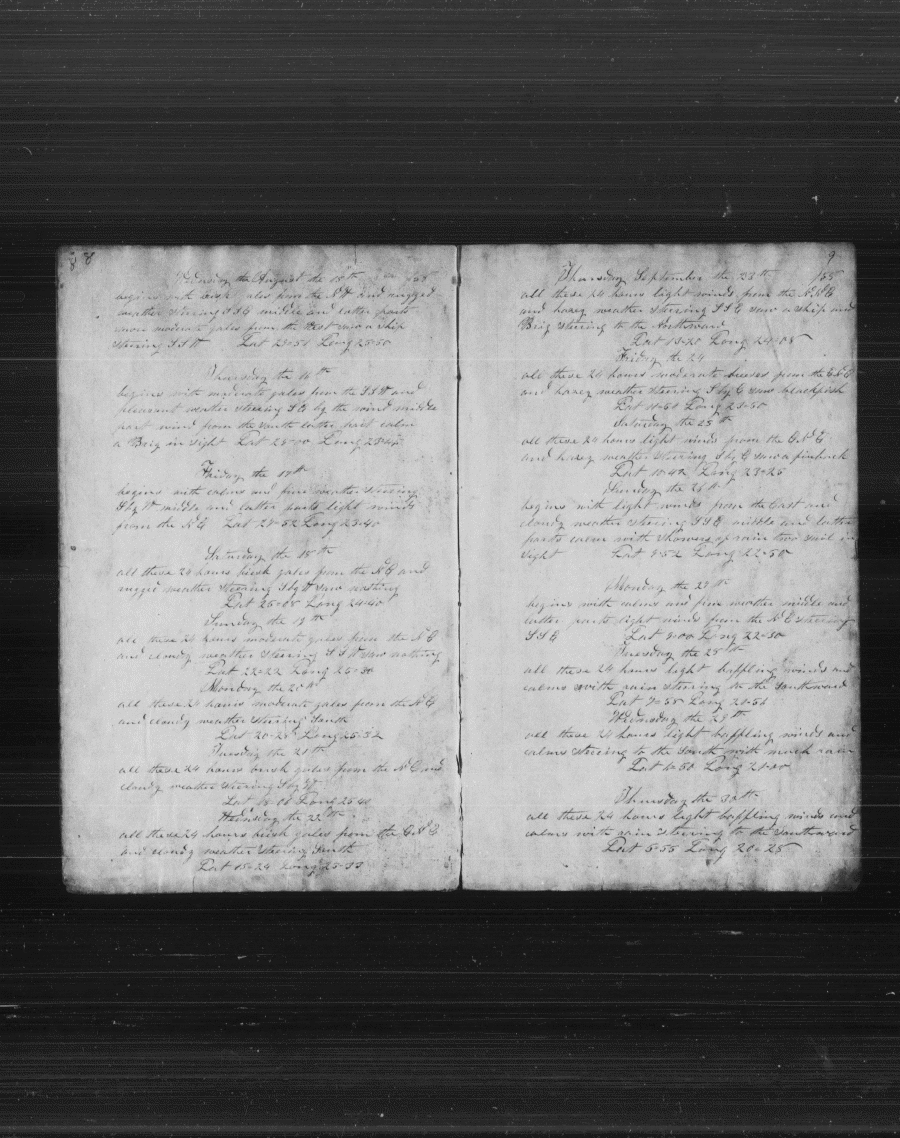 8
Wednesday the August the 15th 1855
begins with brisk gales from the N W and rugged
weather steering S S E middle and latter parts
more moderate gales from the West saw a Ship
steering S S W Lat 29-51 Long 25-50
Thursday the 16th
begins with moderate gales from the S S W and
pleasant weather steering S E by the wind middle
part wind from the South latter part calm
a Brig in sight Lat 28-00 Long
Friday the 17th
begins with calms and fine weather steering
S by W middle and latter parts light winds
from the N E Lat 27-52 Long 23-40
Saturday the 18th
all these 24 hours brisk gales from the N E and
rugged weather steering S by W saw nothing
Lat 25-05 Long 24-40
Sunday the 19th
all these 24 hours moderate gales from the N E
and cloudy weather steering S S W saw nothing
Lat 22-22 Long 25-30
Monday the 20th
all these 24 hours moderate gales from the N E
and cloudy weather steering South
Lat 20-25 Long 25-52
Tuesday the 21th
all these 24 hours brisk gales from the N E and
cloudy weather steering S by W
Lat Long 25-40
Wednesday the 22th
all these 24 hours brisk gales from the E N E
and cloudy weather steering South
Lat 15-24 Long 25-33
9
Thursday September the 23th 1855
all these 24 hours light winds from the N N E
and hazey weather steering S S E saw a ship and
Brig steering to the Northward
Lat 13-20 Long 24-05
Friday the 24
all these 24 hours moderate breeses from the E N E
and hazey weather steering S by E saw blackfish
Lat 11-51 Long 23-50
Saturday the 25th
all these 24 hours light winds from the E N E
and hazey weather steering S by E saw a finback
Lat 10-42 Long 23-25
Sunday the 26th
begins with light winds from the East and
cloudy weather steering S S E middle and latter
parts calm with showers of rain two sail in
sight Lat 9-52 Long 22-50
Monday the 27th
begins with calms and fine weather middle and
latter parts light winds from the N E steering
S S E Lat 9-00 Long 22-30
Tuesday the 28th
all these 24 hours light baffling winds and
calms with rain steering to the Southward
Lat 7-58 Long 21-51
Wednesday the 29th
all these 24 hours light baffling winds and
calms steering to the South with much rain
Lat 6-50 Long 21-00
Thursday the 30th
all these 24 hours light baffling winds and
calms with rain steering to the Southward
Lat 5-55 Long 20-25